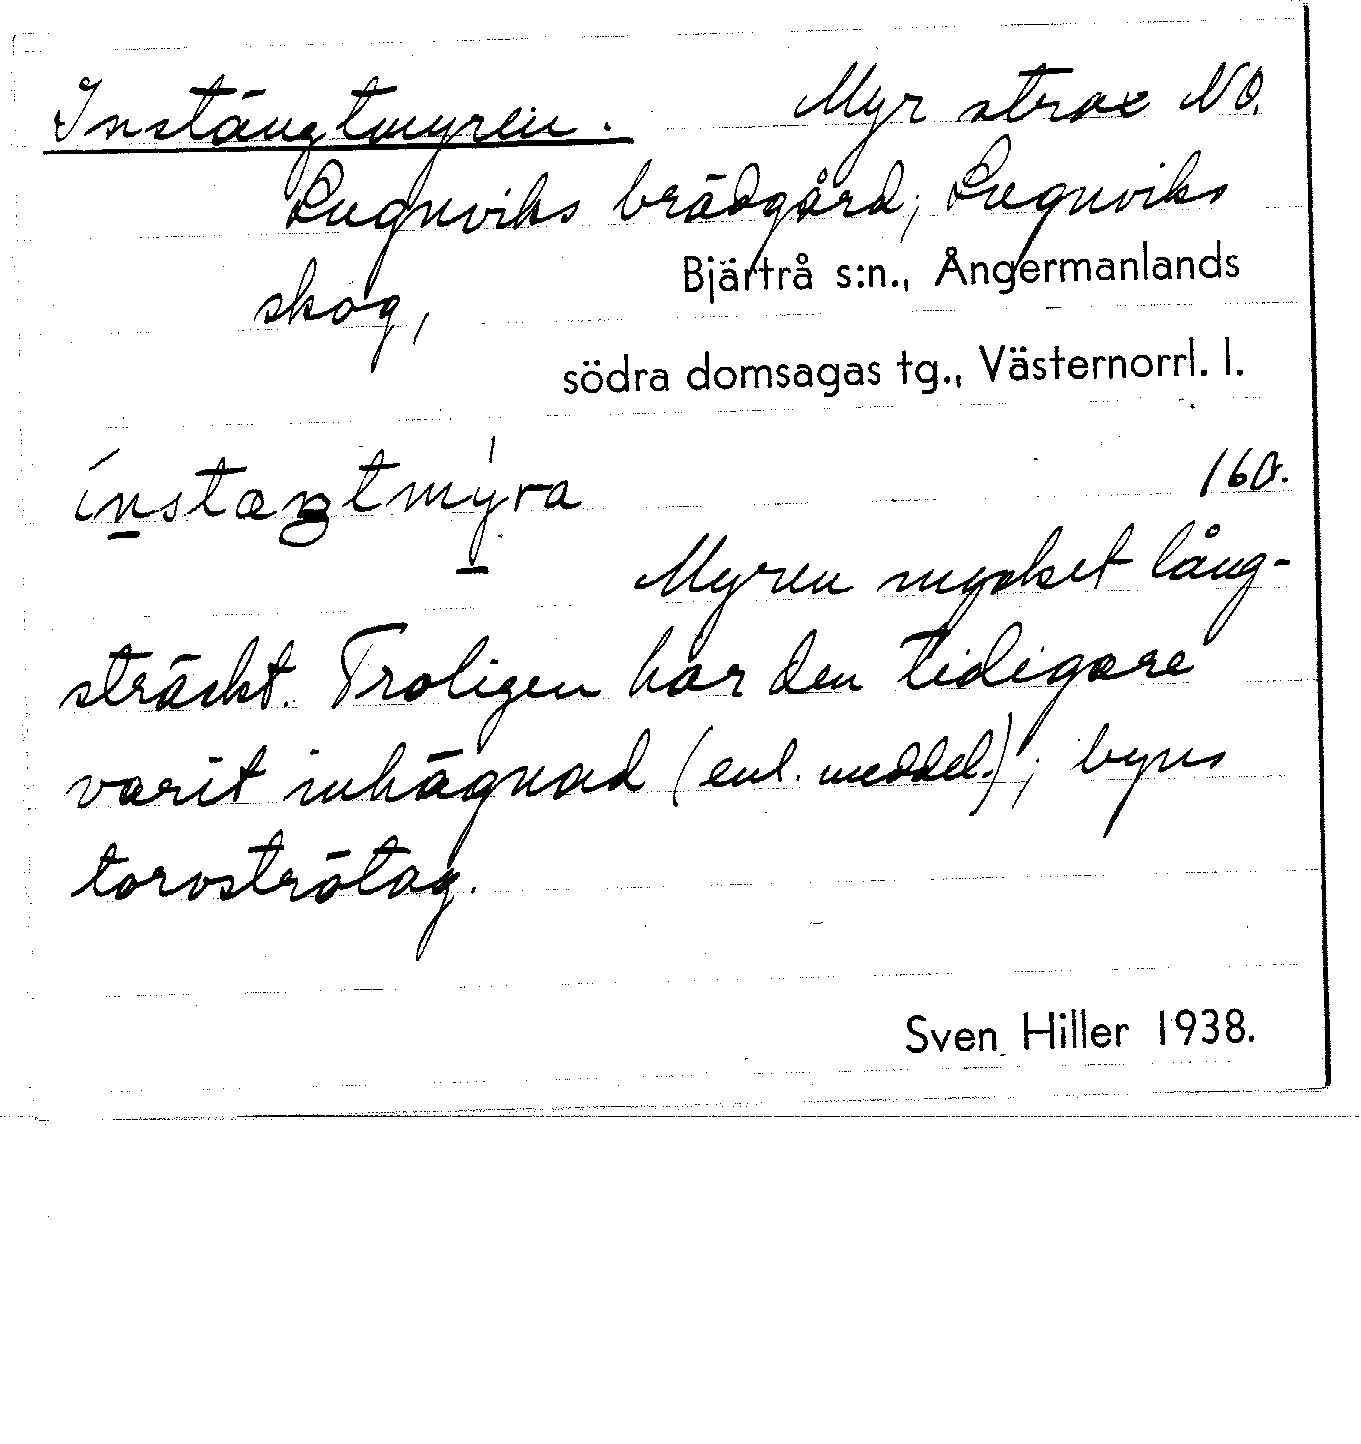 Instängtmyren. Myr strax NO.
Lugnviks brädgård; Lugnviks
skog, Bjärtrå s:n., Ångermanlands
södra domsagas tg., Västernorrl. l.
160.
Myren mycket lång-
sträckt. Troligen har den tidigare
varit inhägnad (enl. meddel.); byns
torvströtag.
Sven Hiller 1938.